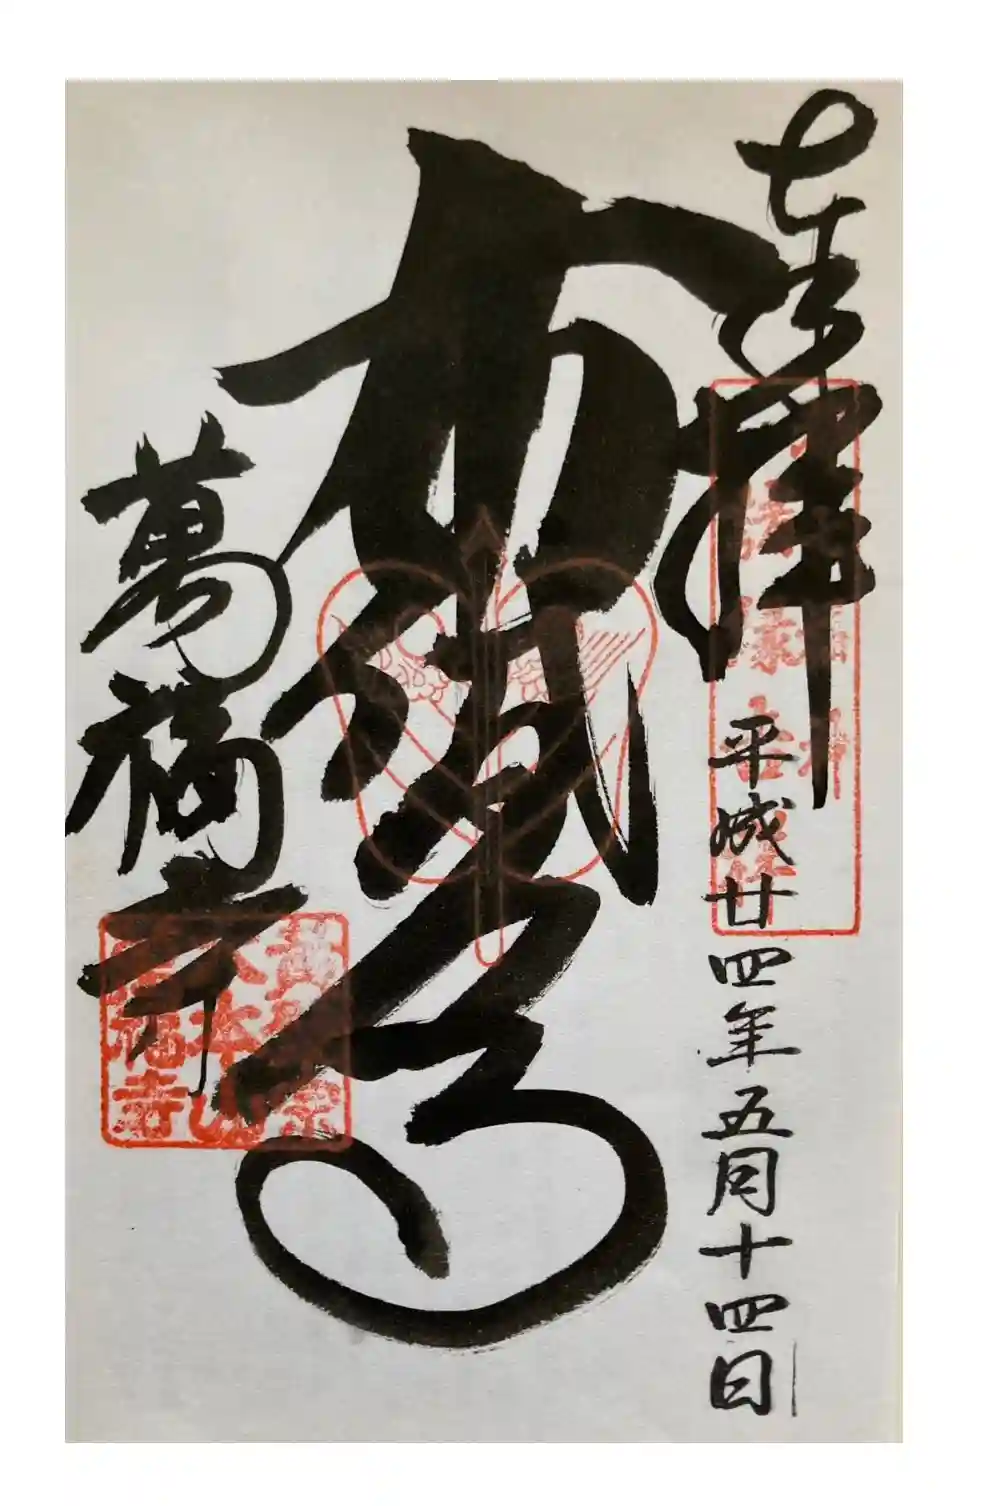 奉拝
平成廿四年五月十四日
布袋尊
萬福寺
黄檗宗
大本山
萬福寺